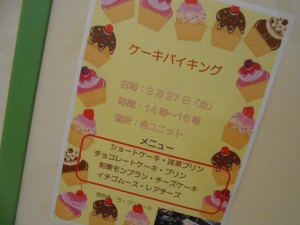 ケーキバイキング
日時:3月27日(金)
時間:14時~16時
場所:各ユニット
メニュー
ショートケーキ・抹茶プリン
チョコレートケーキ・プリン
和栗モンブラン・チーズケーキ
イチゴムース・レアチーズ